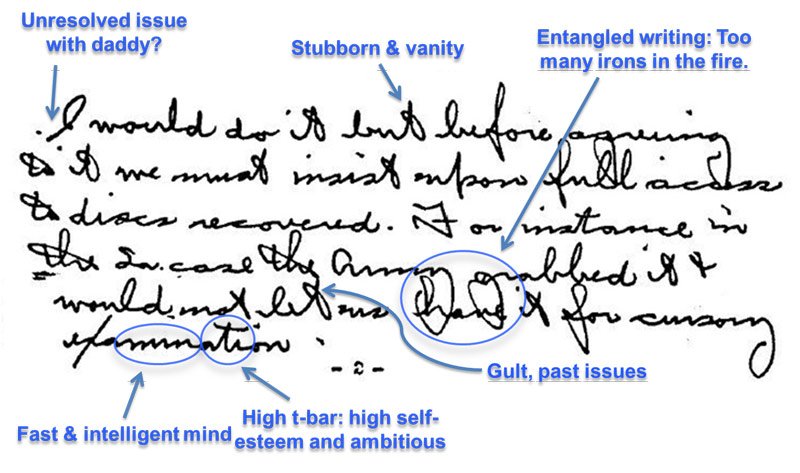 Unresolved issue
with daddy?
Stubborn & vanity
Entangled writing: Too
many irons in the fire.
I would do it but before agreeing
to it we must insist upon full access
to discs recovered. For instance in
the case the Army grabbed it &
would not let us have it for cursory
examination.
- 2 -
Gult, past issues
Fast & intelligent mind
High t-bar: high self-
esteem and ambitious